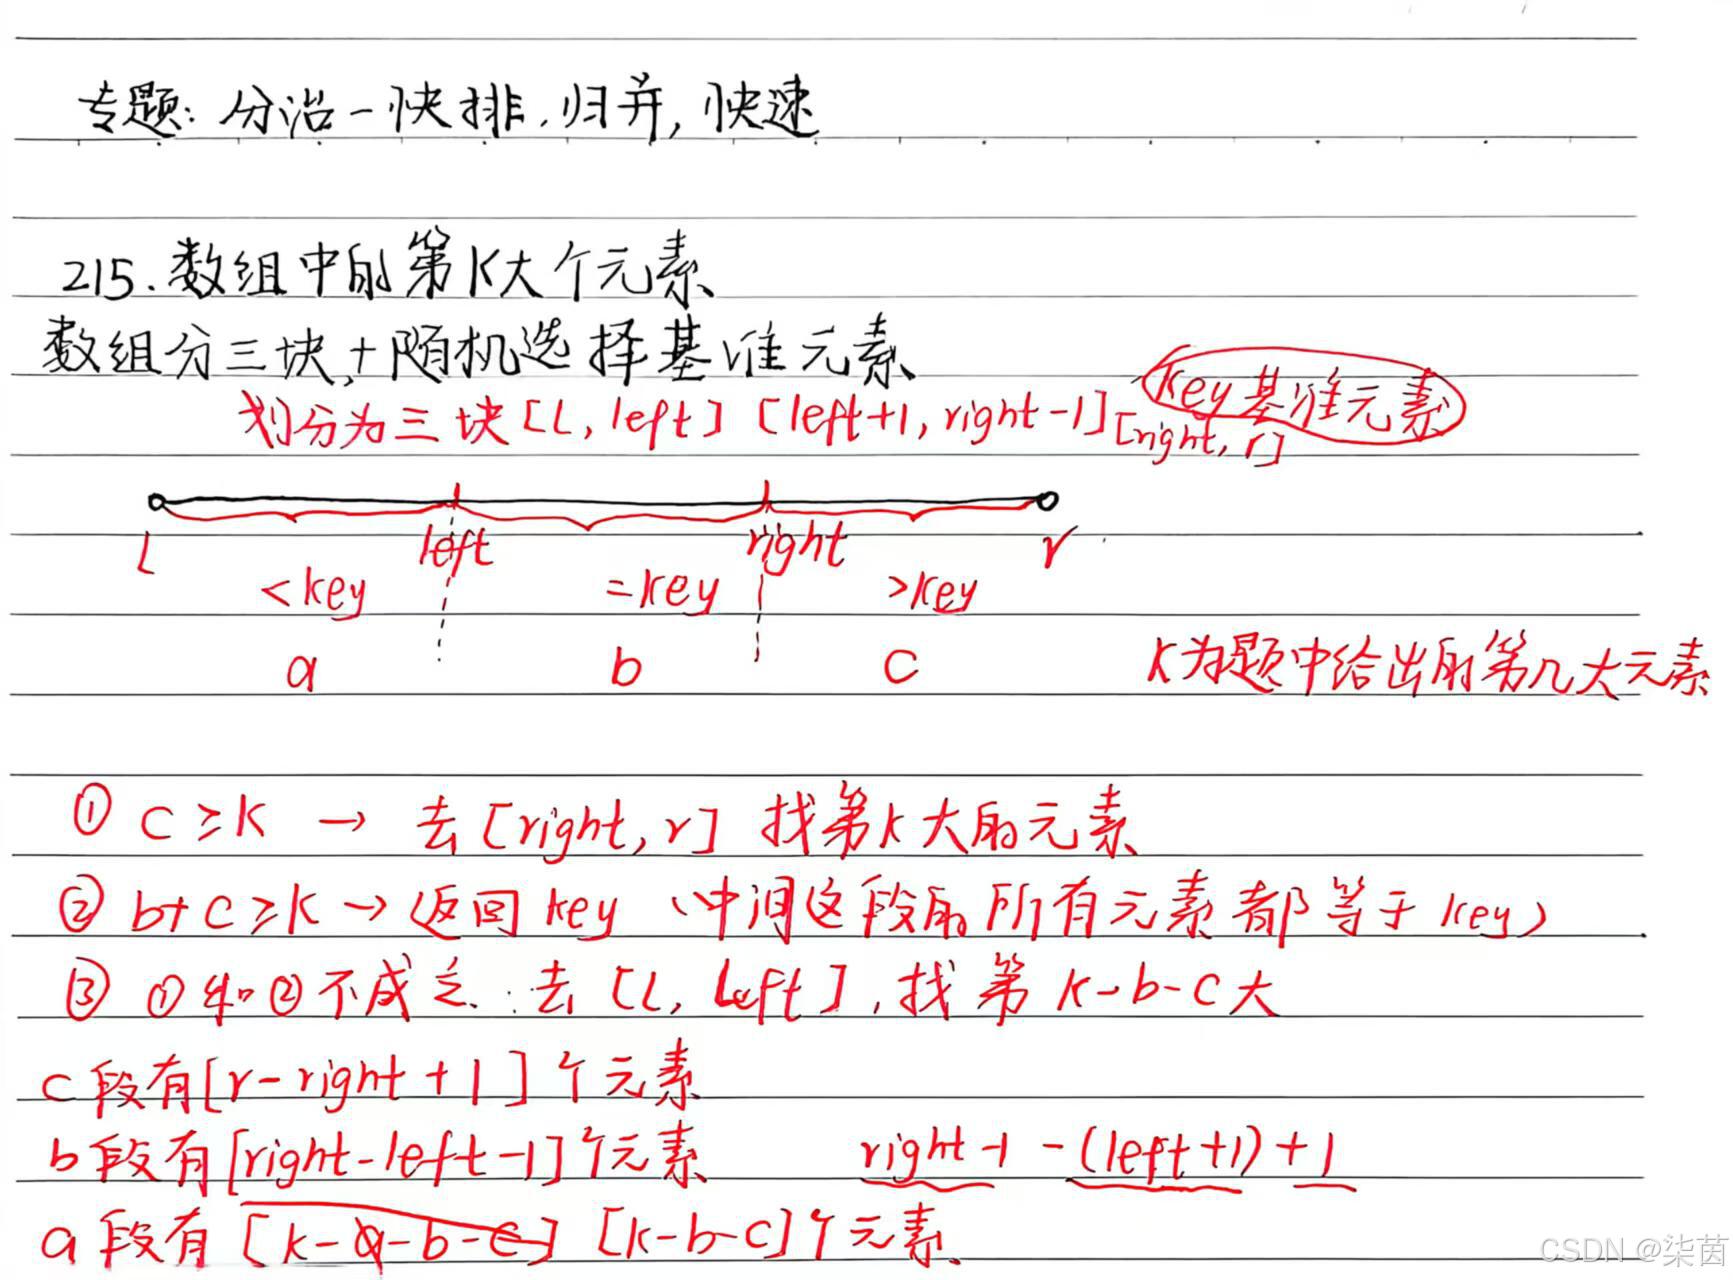 专题:分治-快排,归并,快速
215.数组中的第K大个元素
数组分三块,+随机选择基准元素
key基准元素
划分为三块[l,left] [left+1,right-1] [right,r]
l left right r
<key =key >key
a b c K为题中给出的第几大元素
① c≥K → 去[right,r] 找第K大的元素
② b+c≥K → 返回key (中间这段的所有元素都等于key)
③ ①和②不成立:去[l,left],找第K-b-c大
c段有[r-right+1]个元素
b段有[right-left-1]个元素 right-1-(left+1)+1
a段有[k-a-b-c] [k-b-c]个元素
CSDN @柒茵